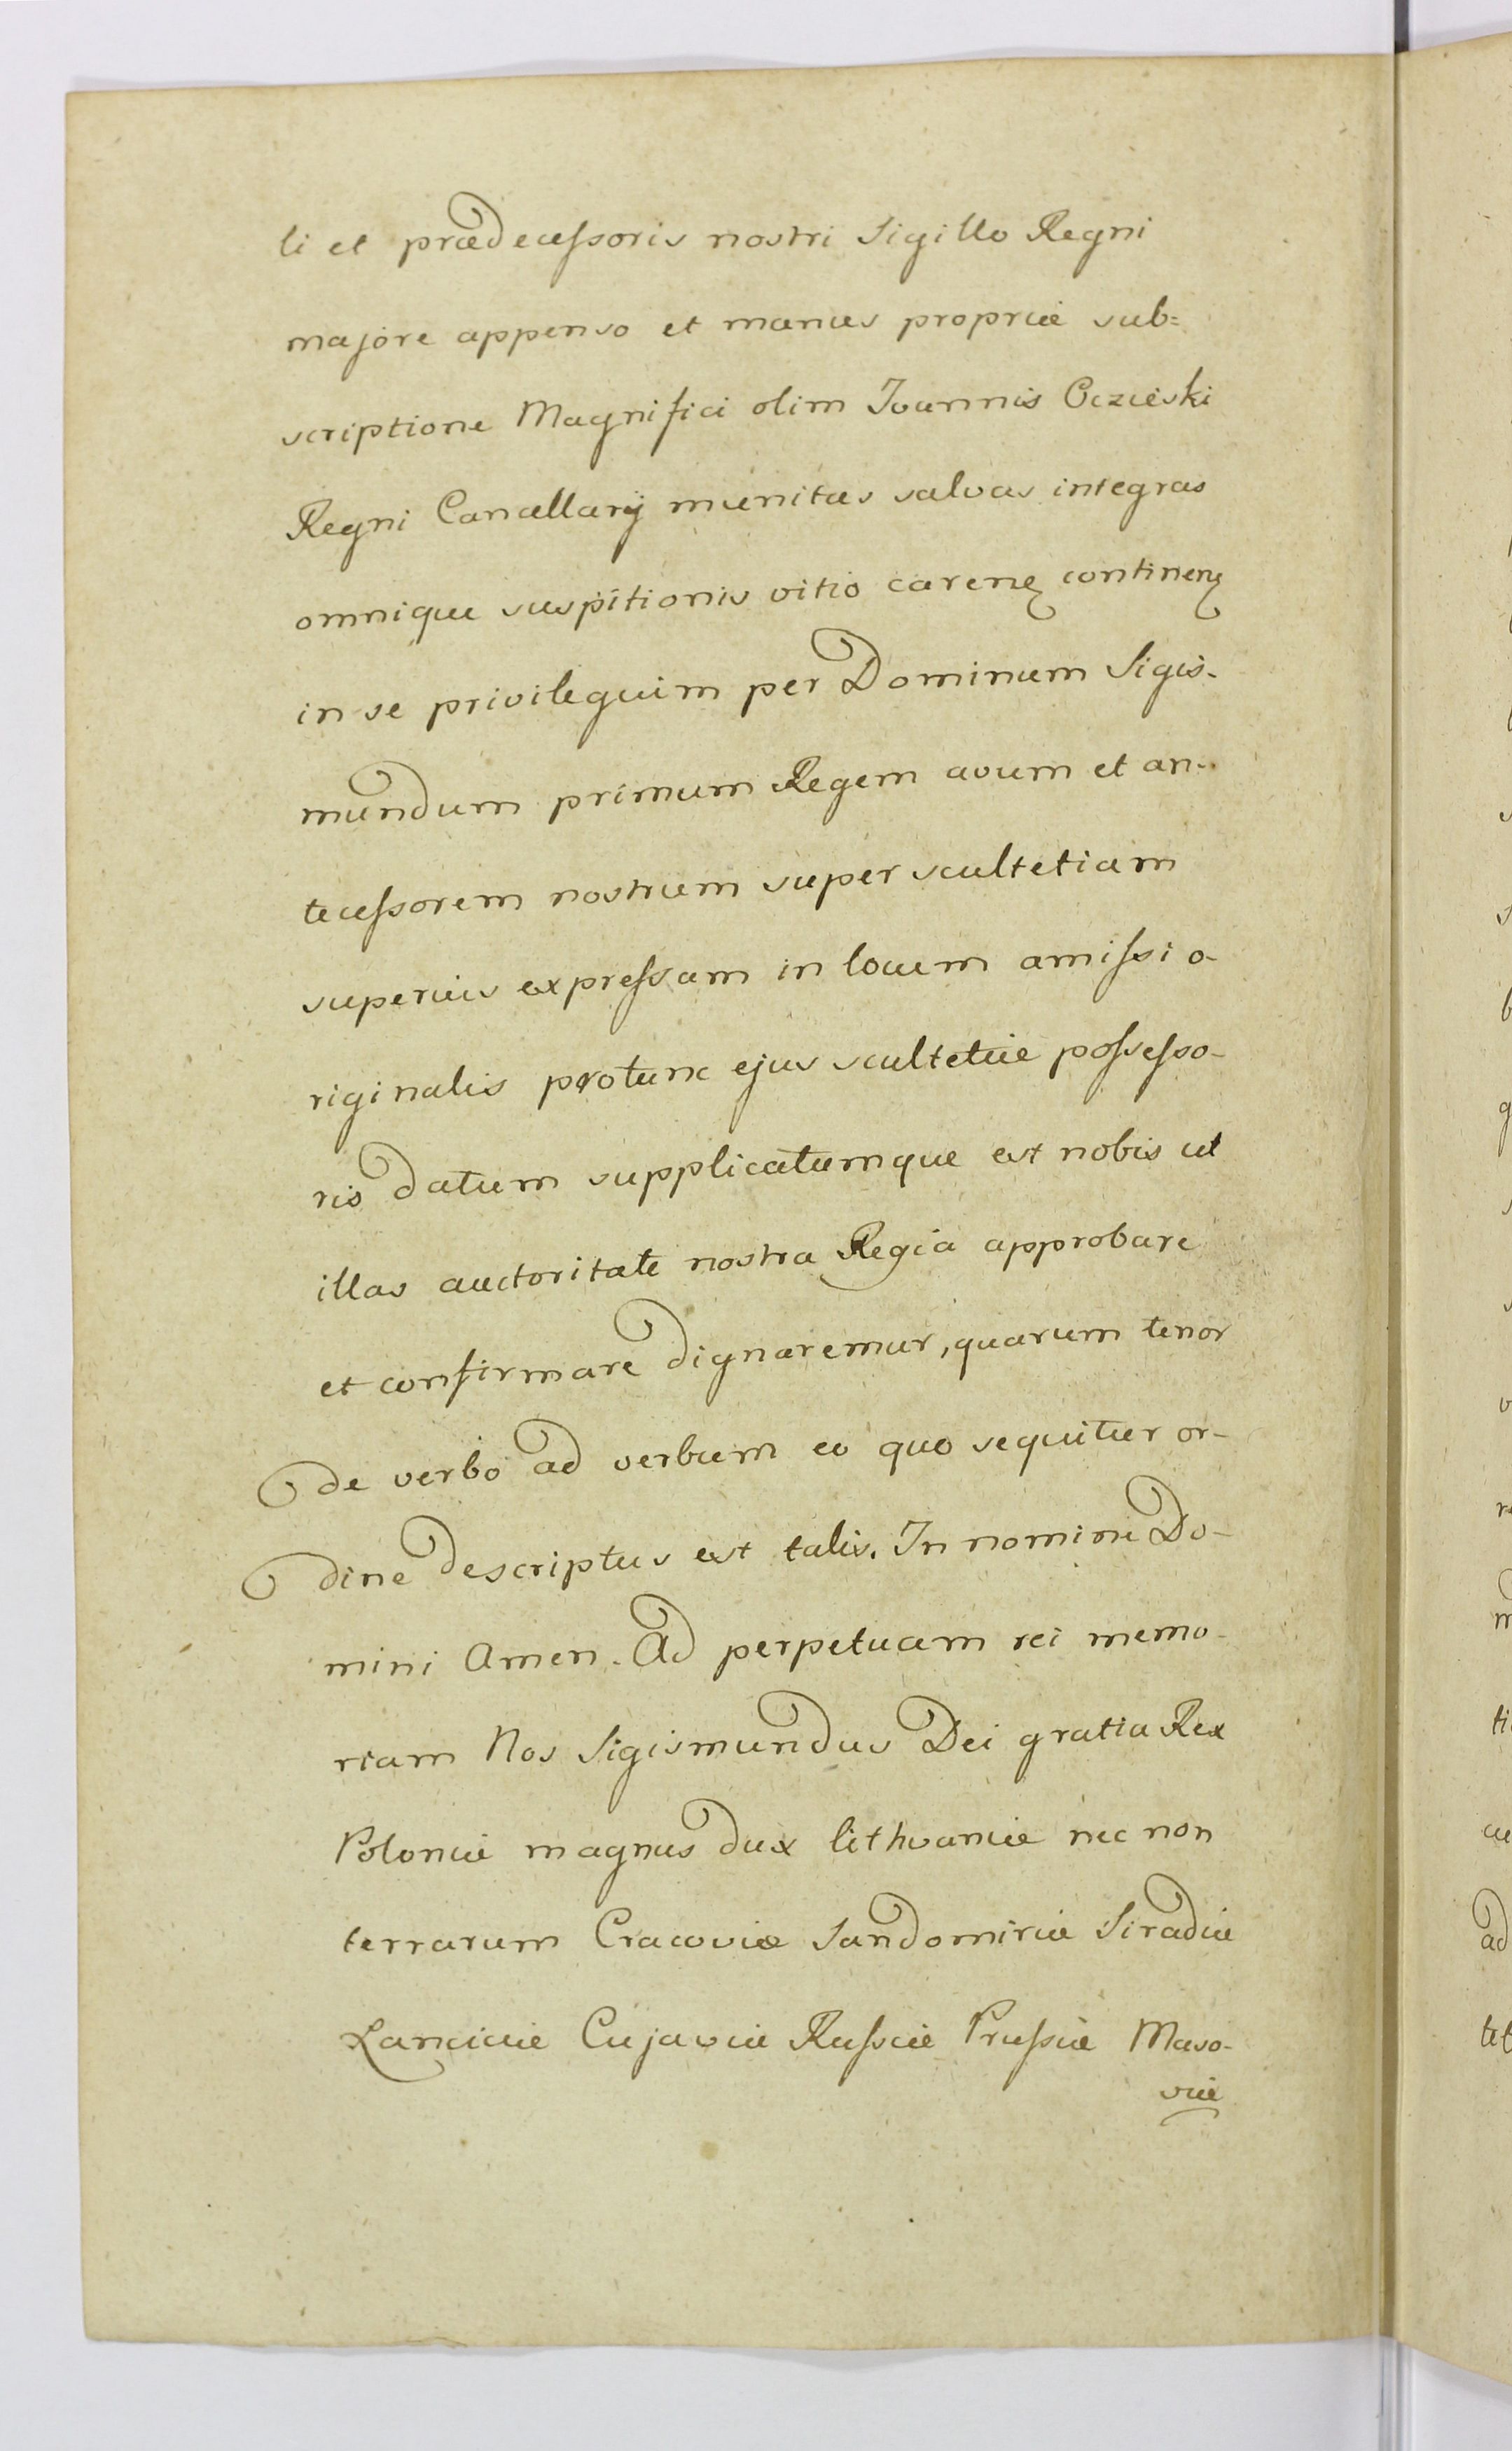 li et prædecessoris nostri Sigillo Regni
majore appenso et manus propriæ sub=
scriptione Magnifici olim Joannis Oczieski
Regni Cancellarij munitas salvas integras
omnique suspitionis vitio caren continen
in se privilegium per Dominum Sigis-
mundum primum Regem avum et an-
tecessorem nostrum super scultetiam
superius expressam in locum amissi o-
riginalis protunc ejus scultetiæ possesso-
ris datum supplicatumque est nobis ut
illas auctoritate nostra Regia approbare
et confirmare dignaremur, quarum tenor
de verbo ad verbum eo quo sequitur or-
dine descriptus est talis. In nomine Do-
mini Amen. Ad perpetuam rei memo-
riam Nos Sigismundus Dei gratia Rex
Poloniæ magnus dux lithvaniæ nec non
terrarum Cracoviæ Sandomiriæ Siradiæ
Lanciciæ Cujaviæ Russiæ Prussiæ Maso-
viæ